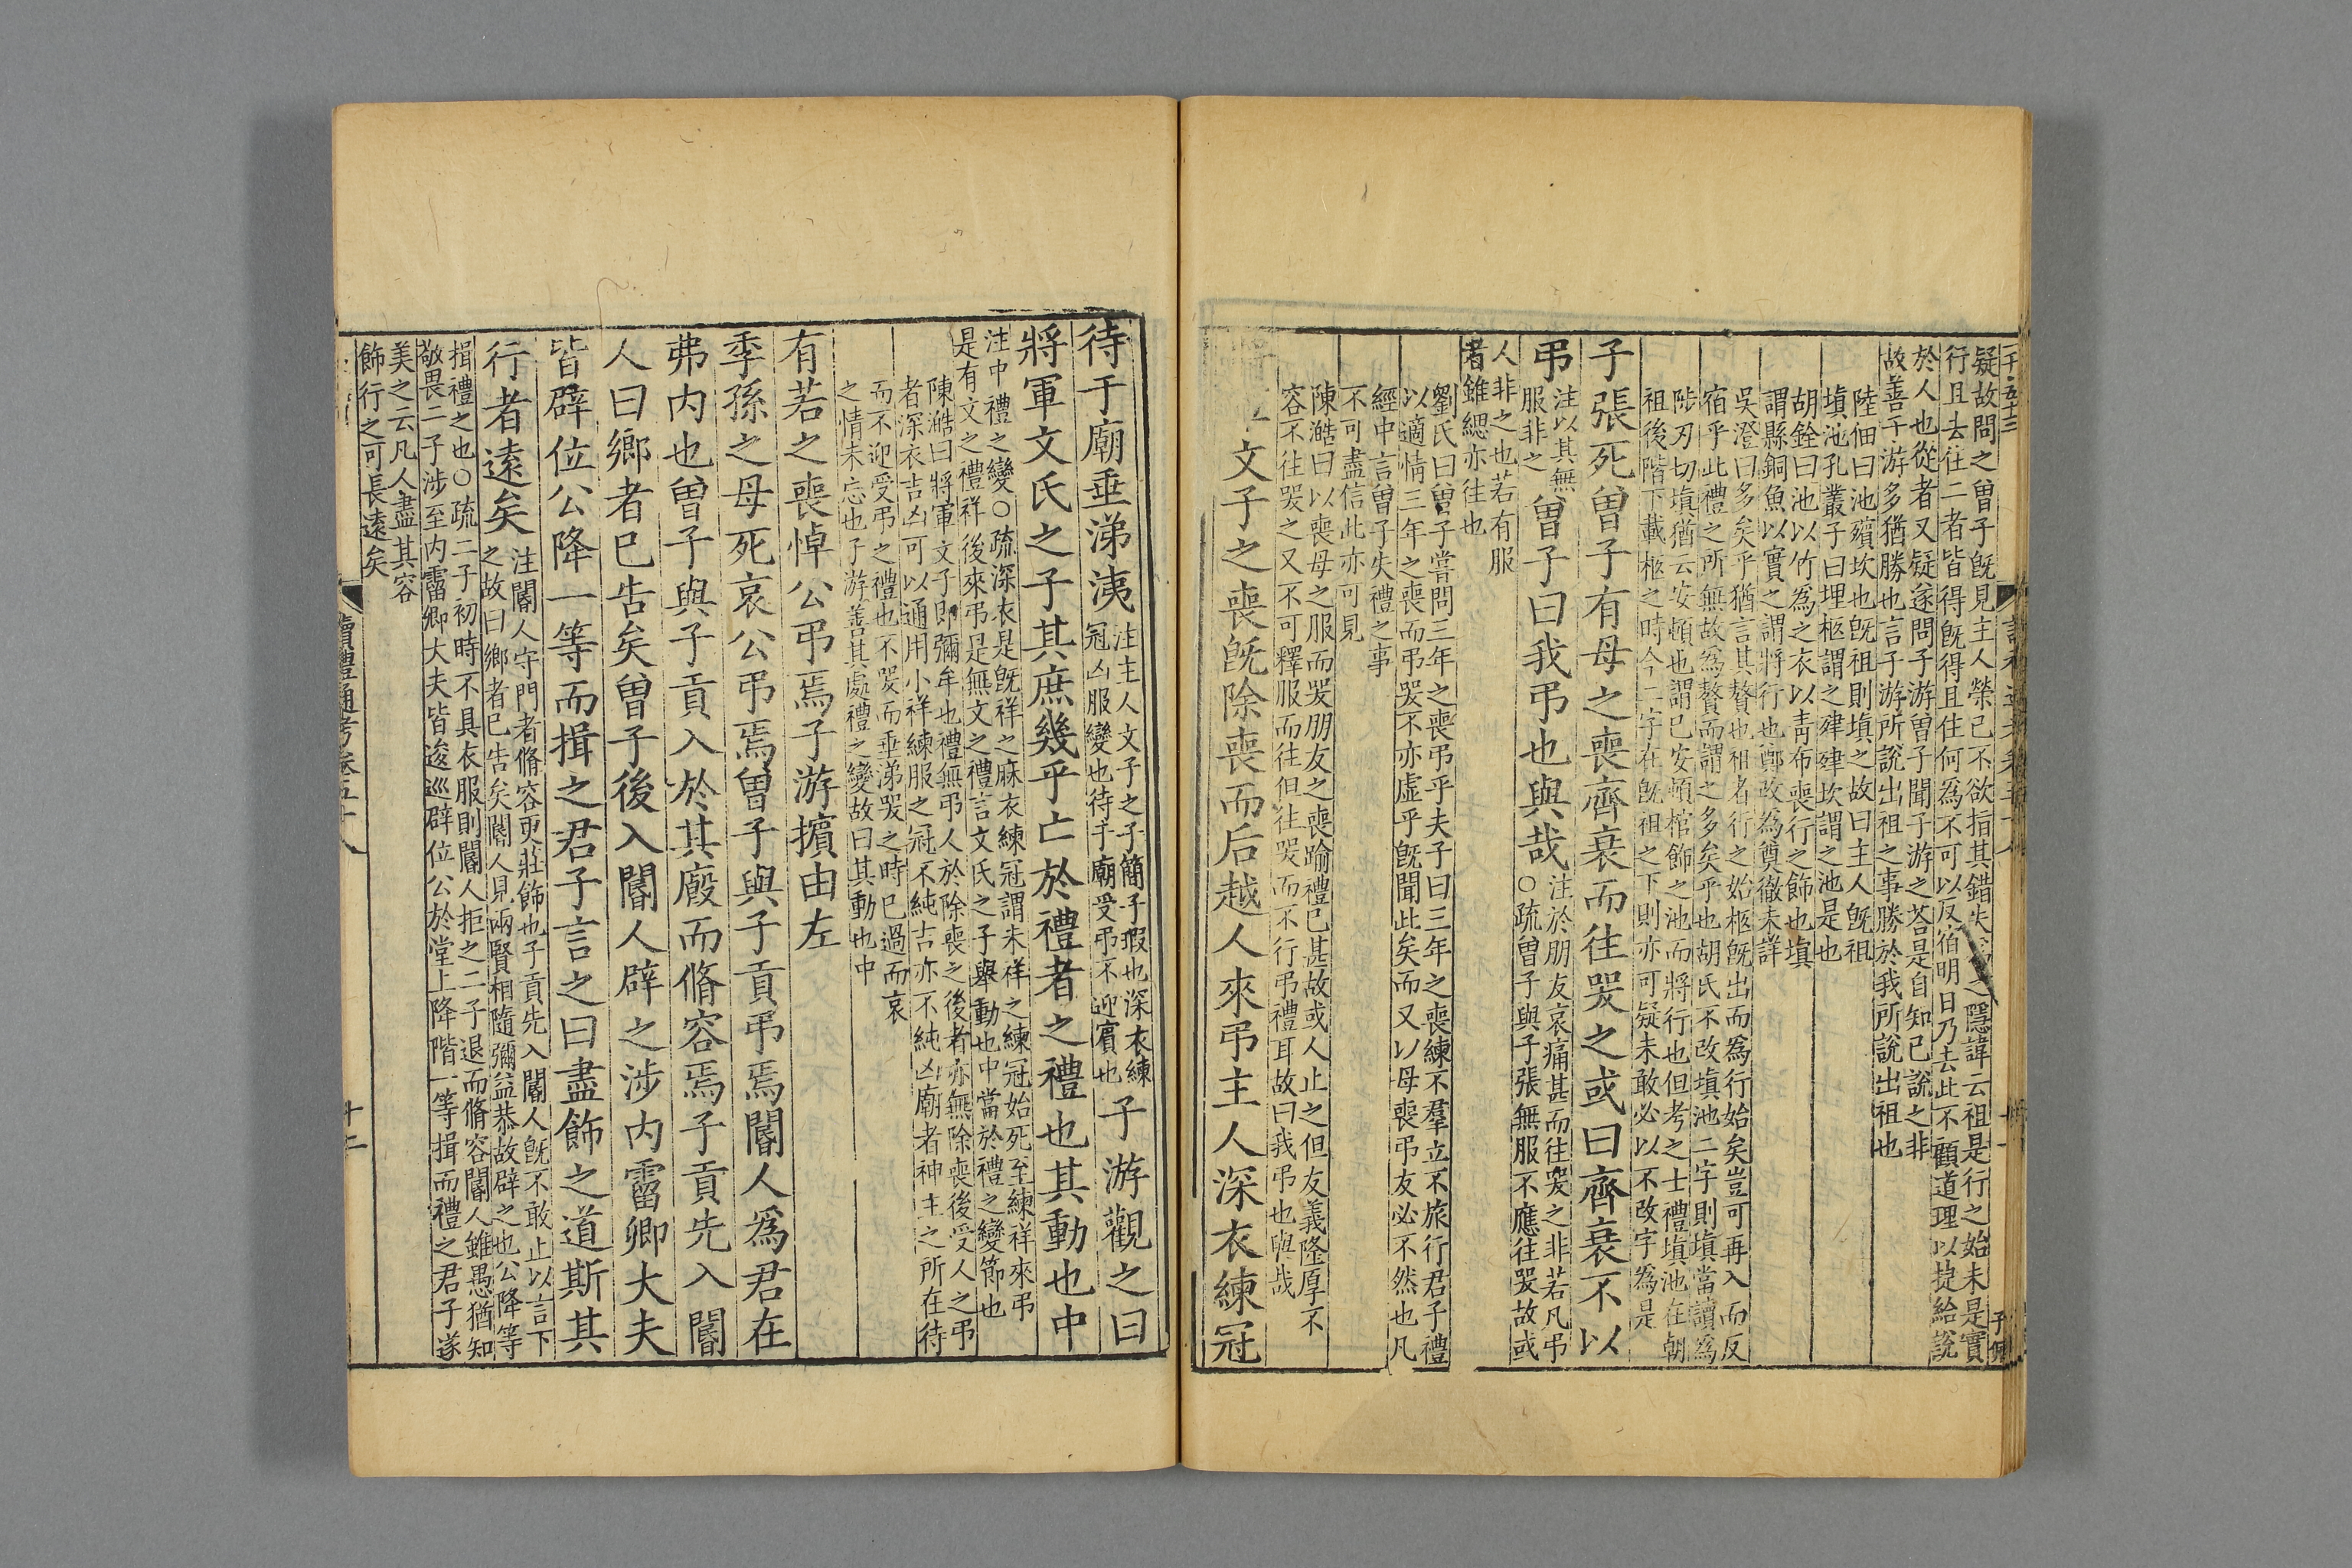 疑故問之曾子既見主人榮己不欲指其錯失之隱諱云祖是行之始未是實
行且去住二者皆得既得且住何為不可以反宿明日乃去此不顧道理以捷給說
於人也從者又疑遂問子游曾子聞子游之荅是自知己說之非
故善子游多猶勝也言子游所說出祖之事勝於我所說出祖也
陸佃曰池殯坎也既祖則填之故曰主人既祖
填池孔叢子曰埋柩謂之肂肂坎謂之池是也
胡銓曰池以竹為之衣以青布喪行之飾也填
謂縣銅魚以實之謂將行也鄭改為奠徹未詳
吳澄曰多矣乎猶言其贅也祖者行之始柩既出而為行始矣豈可再入而反
宿乎此禮之所無故為贅而謂之多矣乎也胡氏不改填池二字則填當讀為
陟刃切填猶云安頓也謂已安頓棺飾之池而將行也但考之士禮填池在朝
祖後階下載柩之時今二字在既祖之下則亦可疑未敢必以不改字為是
子張死曾子有母之喪齊衰而往哭之或曰齊衰不以
弔注以其無服非之曾子曰我弔也與哉注於朋友哀痛甚而往哭之非若凡弔○疏曾子與子張無服不應往哭故或
人非之也若有服
者雖緦亦往也
劉氏曰曾子嘗問三年之喪弔乎夫子曰三年之喪練不羣立不旅行君子禮
以適情三年之喪而弔哭不亦虛乎既聞此矣而又以母喪弔友必不然也凡
經中言曾子失禮之事
不可盡信此亦可見
陳澔曰以喪母之服而哭朋友之喪踰禮已甚故或人止之但友義隆厚不
容不往哭之又不可釋服而往但往哭而不行弔禮耳故曰我弔也與哉
文子之喪既除喪而后越人來弔主人深衣練冠
待于廟垂涕洟注主人文子之子簡子瑕也深衣練冠凶服變也待于廟受弔不迎賓也子游觀之曰
將軍文氏之子其庶幾乎亡於禮者之禮也其動也中
注中禮之變○疏深衣是既祥之麻衣練冠謂未祥之練冠始死至練祥來弔
是有文之禮祥後來弔是無文之禮言文氏之子舉動也中當於禮之變節也
陳澔曰將軍文子即彌牟也禮無弔人於除喪之後者亦無除喪後受人之弔
者深衣吉凶可以通用小祥練服之冠不純吉亦不純凶廟者神主之所在待
而不迎受弔之禮也不哭而垂涕哭之時已過而哀
之情未忘也子游善其處禮之變故曰其動也中
有若之喪悼公弔焉子游擯由左
季孫之母死哀公弔焉曾子與子貢弔焉閽人為君在
弗內也曾子與子貢入於其廄而脩容焉子貢先入閽
人曰鄉者已告矣曾子後入閽人辟之涉內霤卿大夫
皆辟位公降一等而揖之君子言之曰盡飾之道斯其
行者遠矣注閽人守門者脩容更莊飾也子貢先入閽人既不敢止以言下之故曰鄉者已告矣閽人見兩賢相隨彌益恭故辟之也公降等
揖禮之也○疏二子初時不具衣服則閽人拒之二子退而脩容閽人雖愚猶知
敬畏二子涉至內霤卿大夫皆逡巡辟位公於堂上降階一等揖而禮之君子遂
美之云凡人盡其容
飾行之可長遠矣
讀禮通考卷五十八